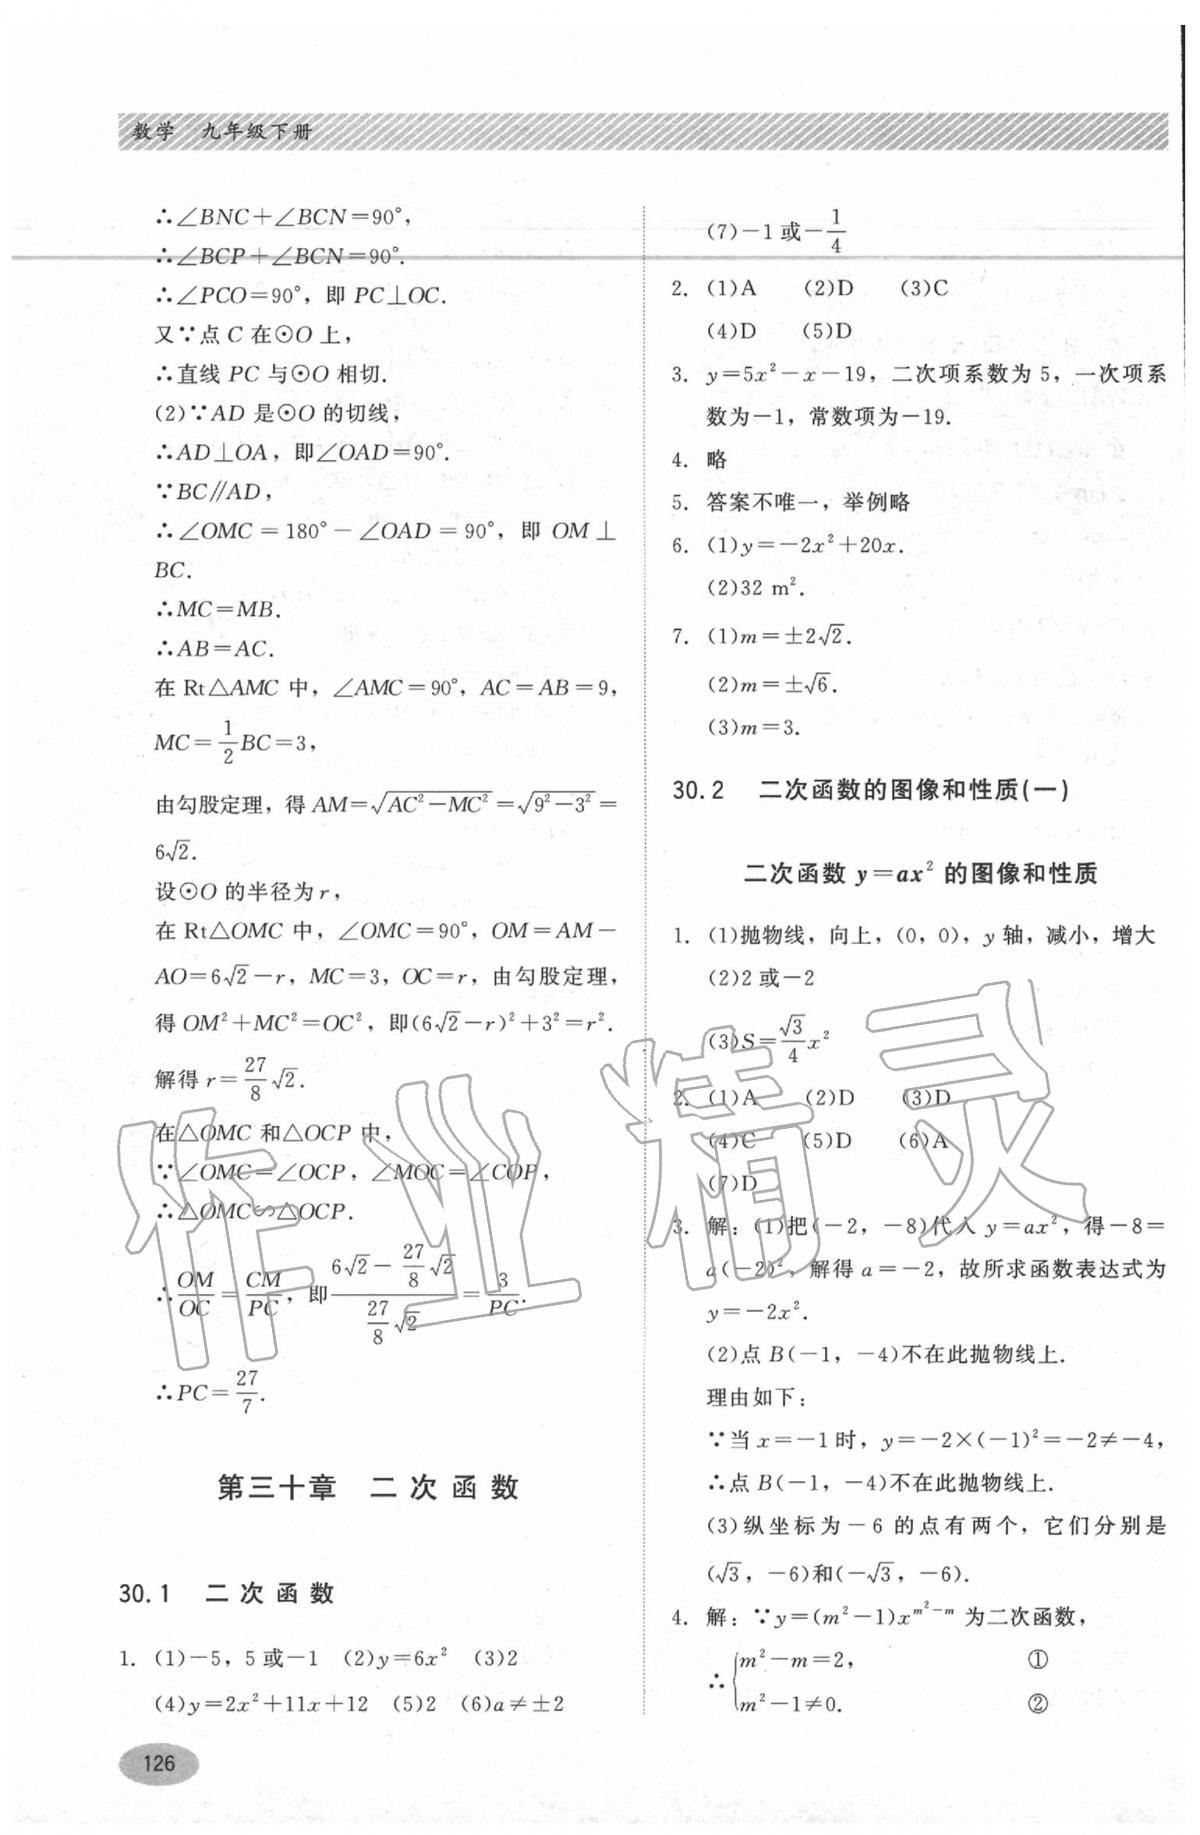 数学 九年级下册
∴∠BNC+∠BCN=90°,
∴∠BCP+∠BCN=90°.
∴∠PCO=90°,即 PC⊥OC.
又∵点 C 在⊙O 上,
∴直线 PC 与⊙O 相切.
(2)∵AD 是⊙O 的切线,
∴AD⊥OA,即∠OAD=90°.
∵BC∥AD,
∴∠OMC=180°-∠OAD=90°,即 OM⊥
BC.
∴MC=MB.
∴AB=AC.
在 Rt△AMC 中,∠AMC=90°,AC=AB=9,
MC=1/2BC=3,
由勾股定理,得 AM=√(AC²-MC²)=√(9²-3²)=
6√2.
设⊙O 的半径为 r,
在 Rt△OMC 中,∠OMC=90°,OM=AM-
AO=6√2-r,MC=3,OC=r,由勾股定理,
得 OM²+MC²=OC²,即(6√2-r)²+3²=r².
解得 r=27/8√2.
在△OMC 和△OCP 中,
∵∠OMC=∠OCP,∠MOC=∠COP,
∴△OMC∽△OCP.
∴OM/OC=CM/PC,即(6√2-27/8√2)/(27/8√2)=3/PC.
∴PC=27/7.
第三十章 二次函数
30.1 二次函数
1. (1)-5,5或-1 (2)y=6x² (3)2
(4)y=2x²+11x+12 (5)2 (6)a≠±2
126
(7)-1或-1/4
2. (1)A (2)D (3)C
(4)D (5)D
3. y=5x²-x-19,二次项系数为 5,一次项系
数为-1,常数项为-19.
4. 略
5. 答案不唯一,举例略
6. (1)y=-2x²+20x.
(2)32 m².
7. (1)m=±2√2.
(2)m=±√6.
(3)m=3.
30.2 二次函数的图像和性质(一)
二次函数 y=ax² 的图像和性质
1. (1)抛物线,向上,(0,0),y 轴,减小,增大
(2)2或-2
(3)S=√3/4x²
2. (1)A (2)D (3)D
(4)C (5)D (6)A
(7)D
3. 解:(1)把(-2,-8)代入 y=ax²,得-8=
a(-2)²,解得 a=-2,故所求函数表达式为
y=-2x².
(2)点 B(-1,-4)不在此抛物线上.
理由如下:
∵当 x=-1 时,y=-2×(-1)²=-2≠-4,
∴点 B(-1,-4)不在此抛物线上.
(3)纵坐标为-6 的点有两个,它们分别是
(√3,-6)和(-√3,-6).
4. 解:∵y=(m²-1)x^(m²-m) 为二次函数,
∴{m²-m=2, ①
m²-1≠0. ②
作业精灵